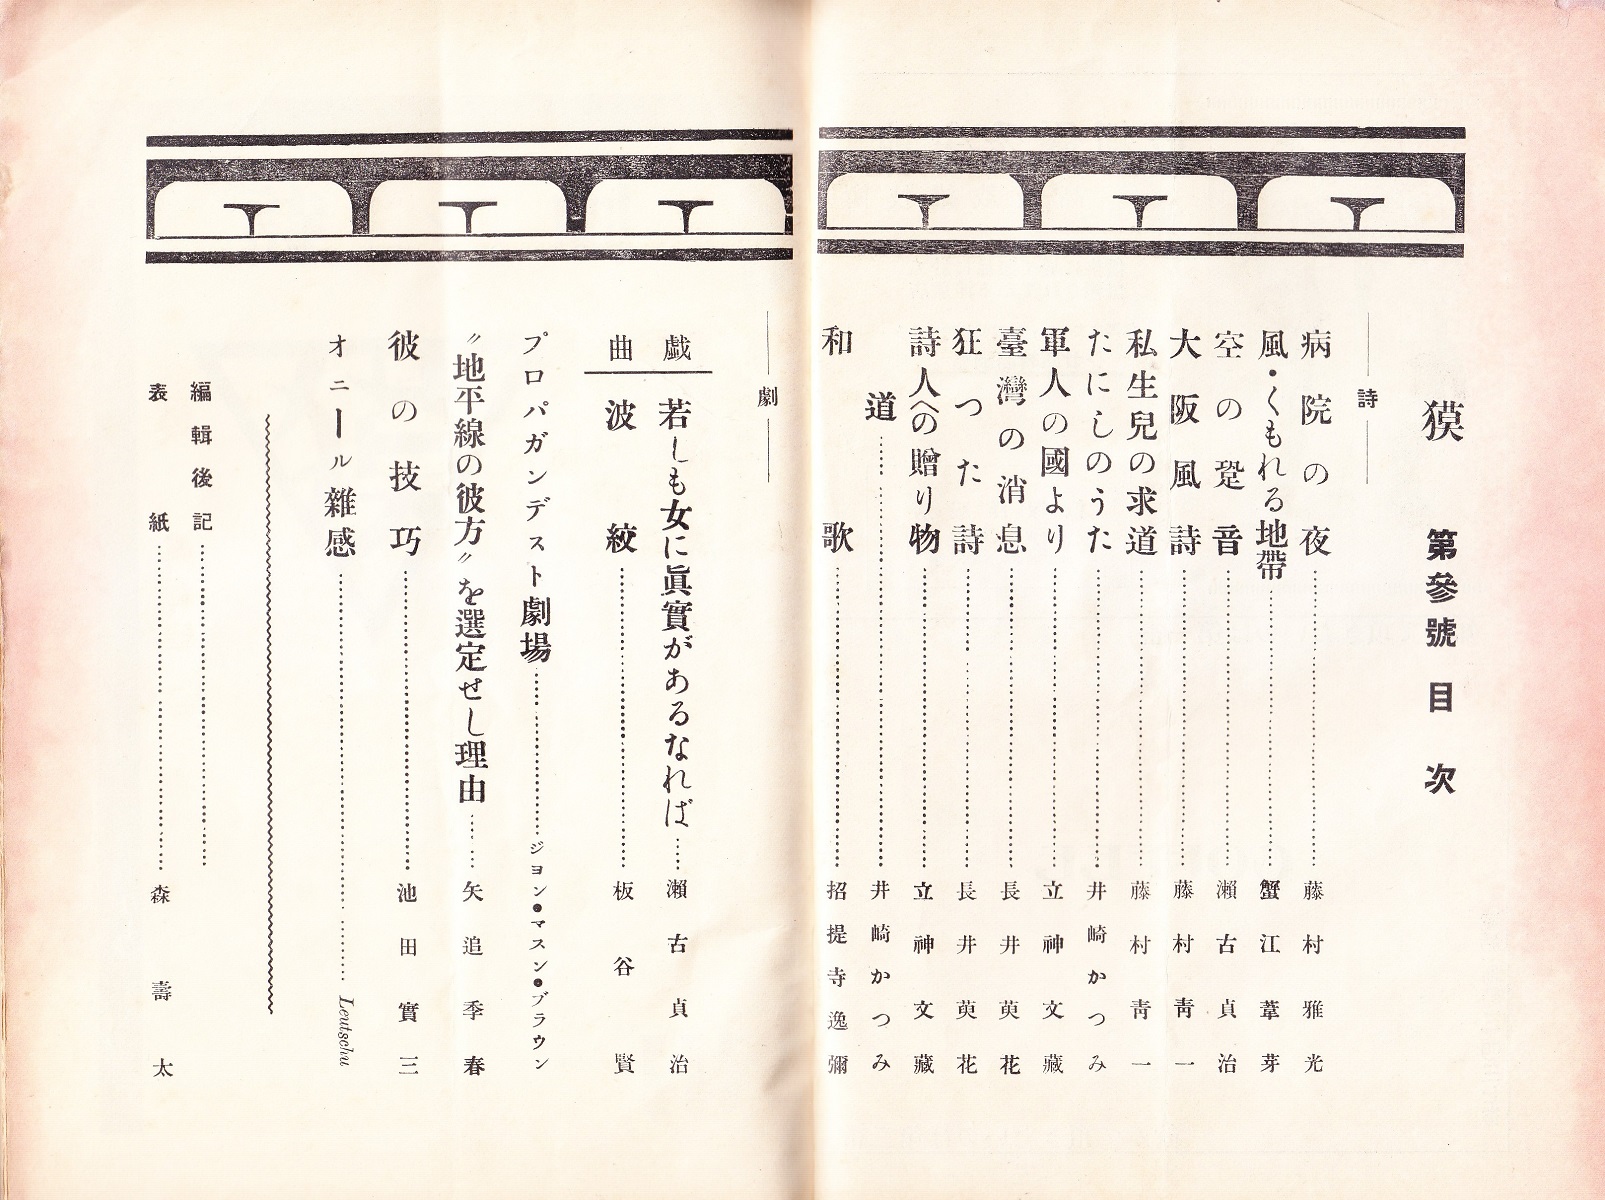 獏 第參號 目次
詩
病院の夜 藤村雅光
風・くもれる地帶 蟹江葦芽
空の跫音 瀨古貞治
大阪風詩 藤村靑一
私生兒の求道 藤村靑一
たにしのうた 井崎かつみ
軍人の國より 立神文藏
臺灣の消息 長井萸花
狂つた詩 長井萸花
詩人への贈り物 立神文藏
道 井崎かつみ
和歌 招提寺逸彌
劇
戯曲
若しも女に眞實があるなれば 瀨古貞治
波紋 板谷賢
プロパガンデスト劇場 ジヨン・マスン・ブラウン
〃地平線の彼方〃を選定せし理由 矢追季春
彼の技巧 池田實三
オニール雜感 Leutschu
編輯後記
表紙 森壽太